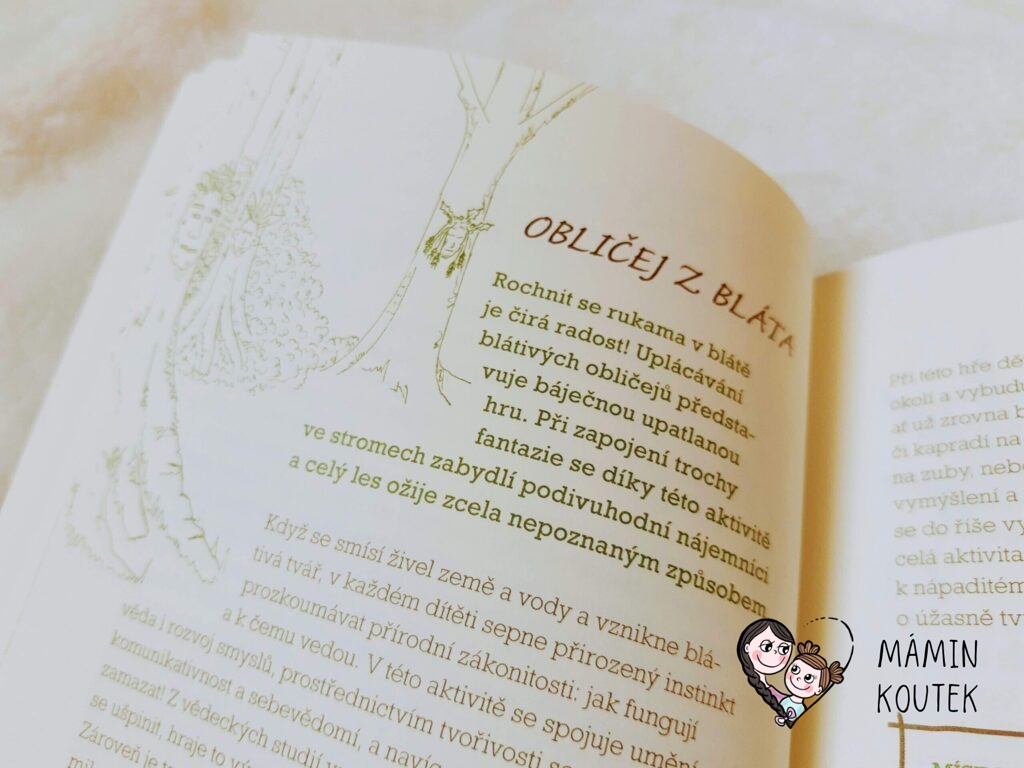 OBLIČEJ Z BLÁTA
Rochnit se rukama v blátě
je čirá radost! Uplácávání
blátivých obličejů předsta-
vuje báječnou upatlanou
hru. Při zapojení trochy
fantazie se díky této aktivitě
ve stromech zabydlí podivuhodní nájemníci
a celý les ožije zcela nepoznaným způsobem
Když se smísí živel země a vody a vznikne blá-
tivá tvář, v každém dítěti sepne přirozený instinkt
prozkoumávat přírodní zákonitosti: jak fungují
a k čemu vedou. V této aktivitě se spojuje umění,
věda i rozvoj smyslů, prostřednictvím tvořivosti se
komunikativnost a sebevědomí, a navíc
zamazat! Z vědeckých studií
se ušpinit, hraje to
Zároveň je
Při této hře
okolí a
ať už zrovna
či kapradí na
na zuby,
vymýšlení a
se do říše
celá aktivita
k
o úžasné
MÁMIN
KOUTEK